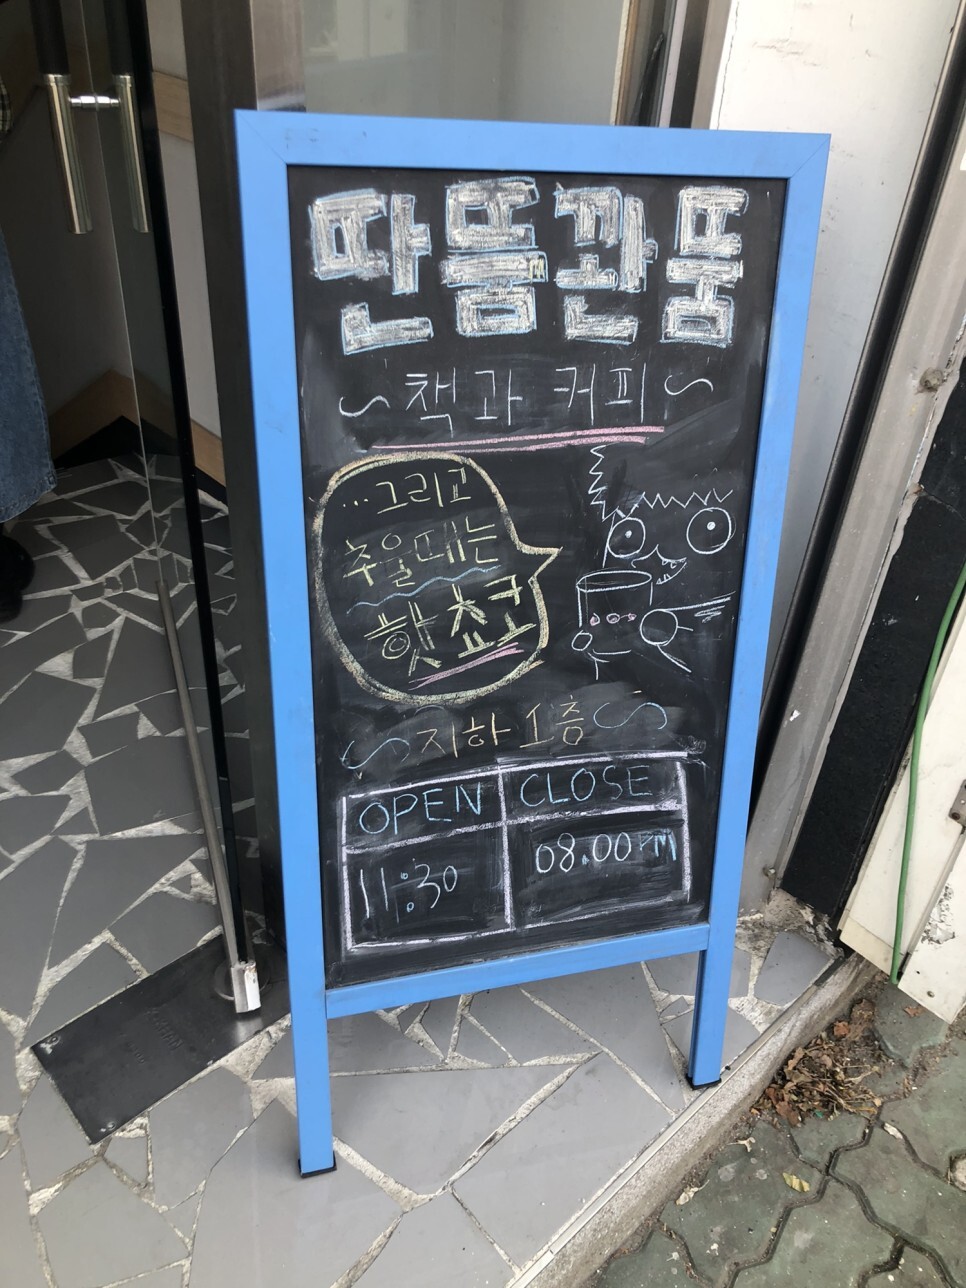 딴뚬꽌뚬
~책과 커피~
...그리고
추울때는
핫쵸코
지하 1층
OPEN CLOSE
11:30 08.00 PM